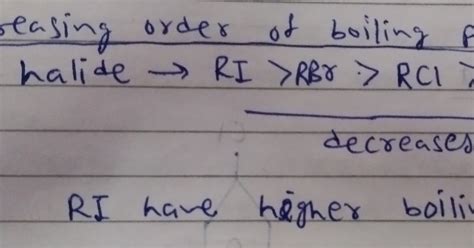 reasing order of boiling p
halide → RI > RBr > RCl >
decreases
RI have higher boili